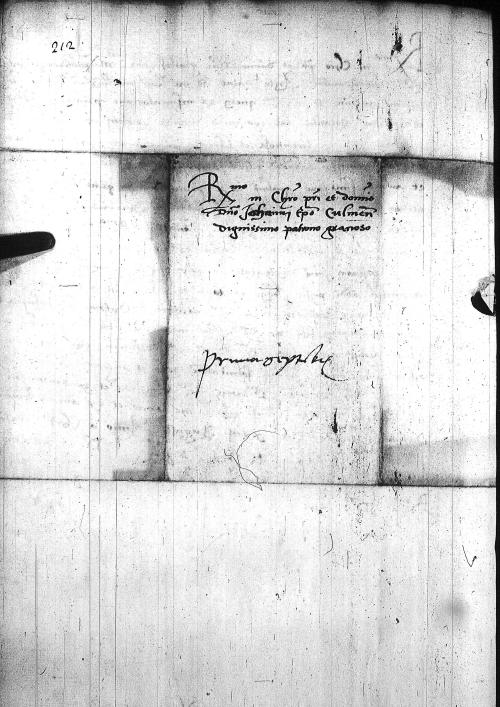 212
Rmo in Chro pri et domino
Dno Johanni Epo Culmen
dignissimo patrono gratioso
prima